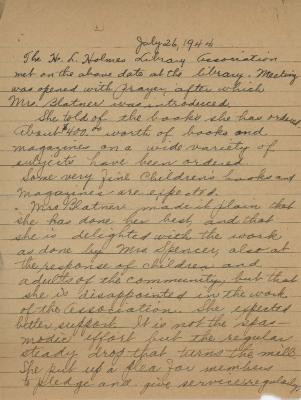 July 26, 1944
The H. L. Holmes Library Association
met on the above date at the library. Meeting
was opened with Prayer, after which
Mrs. Blatner was introduced.
She told of the books she has ordered
About $400.00 worth of books and
magazines on a wide variety of
subjects have been ordered
Some very fine Children's books and
Magazines are expected.
Mrs. Blatner made it plain that
she has done her best, and that
she is delighted with the work
as done by Mrs Spencer, also at
the response of children and
adults of the community, but that
she is disappointed in the work
of the Association. She expected
better support. It is not the spas-
modic effort but the regular
steady drop that turns the mill.
She put up a plea for members
to pledge and give service regularly.